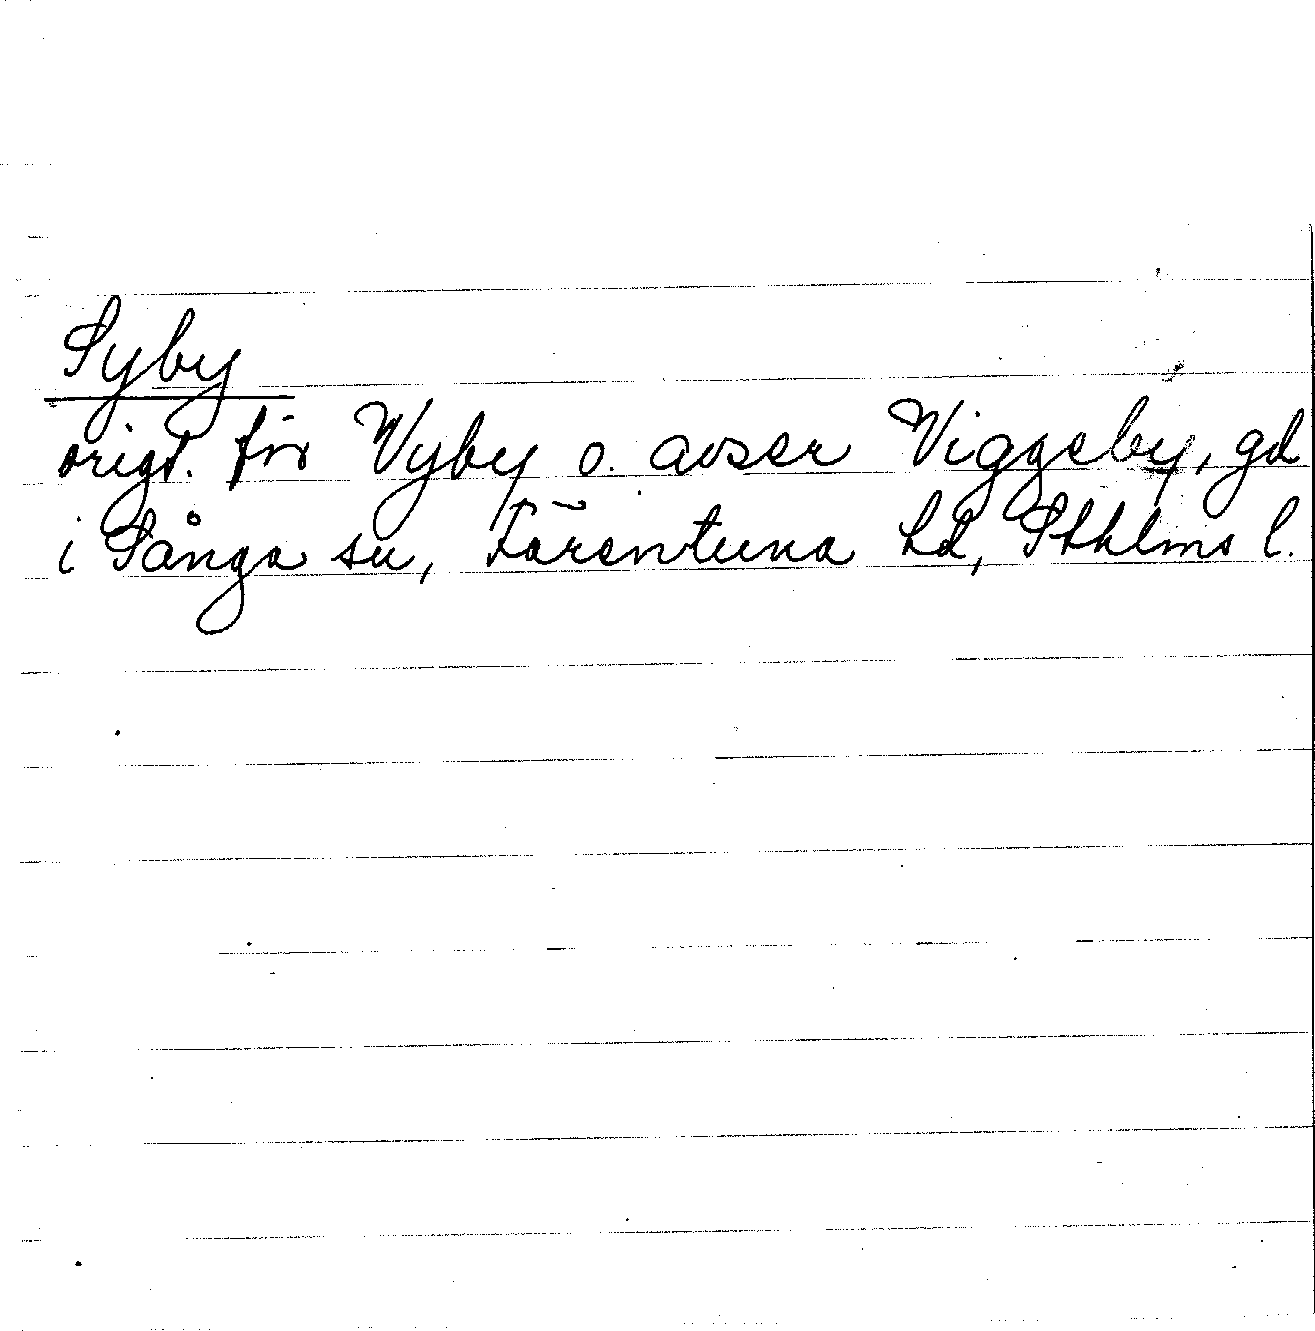 Syby
origt. för Wyby o. avser Viggeby, gd
i Sånga sn, Färentuna hd, Sthlms l.